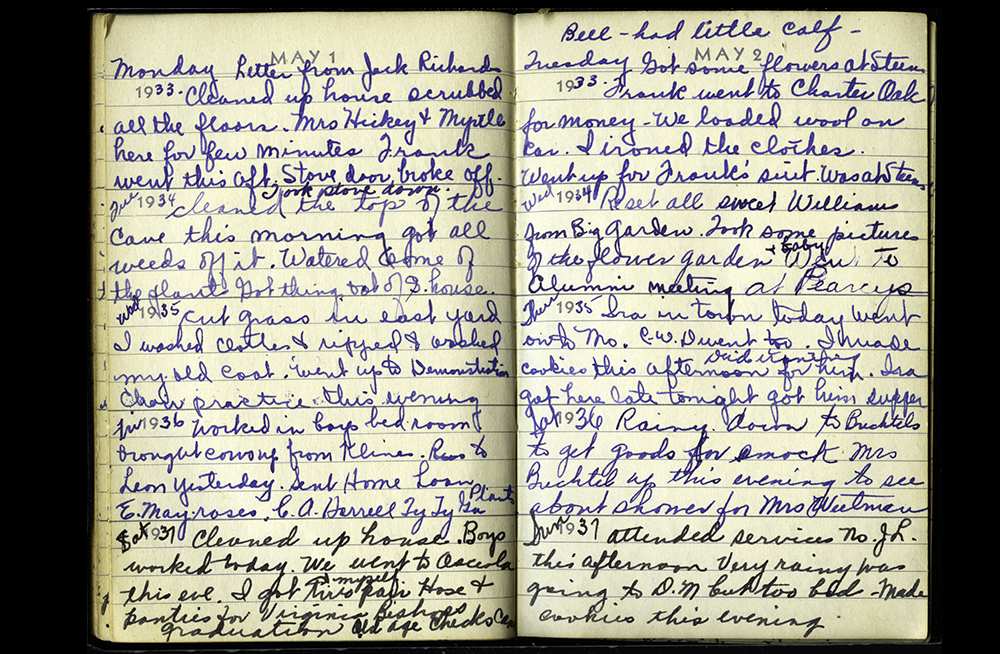 MAY 1
Monday Letter from Jack Richards
1933. Cleaned up house scrubbed
all the floors. Mrs Hickey & Myrtle
here for few minutes Frank
went this aft. Stove door broke off.
Took stove down.
Tue 1934 cleaned the top of the
cave this morning got all
weeds off it. Watered some of
the plants Got thing out of S. house.
Wed 1935 Cut grass in east yard
I washed clothes & ripped & washed
my old coat. Went up to Demonstration
Choir practice this evening
Fri 1936 Worked in boys bed room
brought cows up from Klines.
Leon yesterday. Sent Home Loan
Plants
E. May roses. C. A. Derrell Ty Ty Ga
Sat 1937 Cleaned up house. Boys
worked today. We went to Osceola
& myself
this eve. I got pair Hose &
panties for Virginia Bishops
graduation Old age Checks
Bell - had little calf -
MAY 2
Tuesday Got some flowers at Steens
1933. Frank went to Charter Oak
for money - We loaded wool on
car. I ironed the clothes.
Went up for Frank's suit. Was at Steens
Wed 1934 Reset all sweet Williams
from Big Garden. Took some pictures
& baby
of the flower garden Went to
Alumni meeting at Pearcys
Thur 1935 Ira in town today went
on to Mo. C.W.D went too. I made
cookies this afternoon for him. Ira
got here late tonight got him supper
Sat 1936 Rainy. down to Buchtels
to get goods for smock. Mrs
Buchtel up this evening to see
about shower for Mrs
Sun 1937 attended services No. J L.
this afternoon Very rainy was
going to D.M but too bad - Made
cookies this evening.